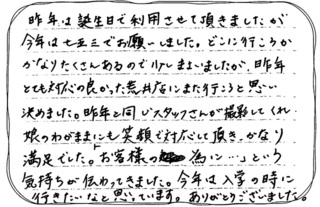 昨年は誕生日で利用させて頂きましたが
今年は七五三でお願いしました。どこに行こうか
かなりたくさんあるので少しまよいましたが、昨年
とても対応の良かった荒井店にまた行こうと思い
決めました。昨年と同じスタッフさんが撮影してくれ
娘のわがままにも笑顔で対応して頂き、かなり
満足でした。"お客様の為に…"という
気持ちが伝わってきました。今年は入学の時に
行きたいなと思っています。ありがとうございました。